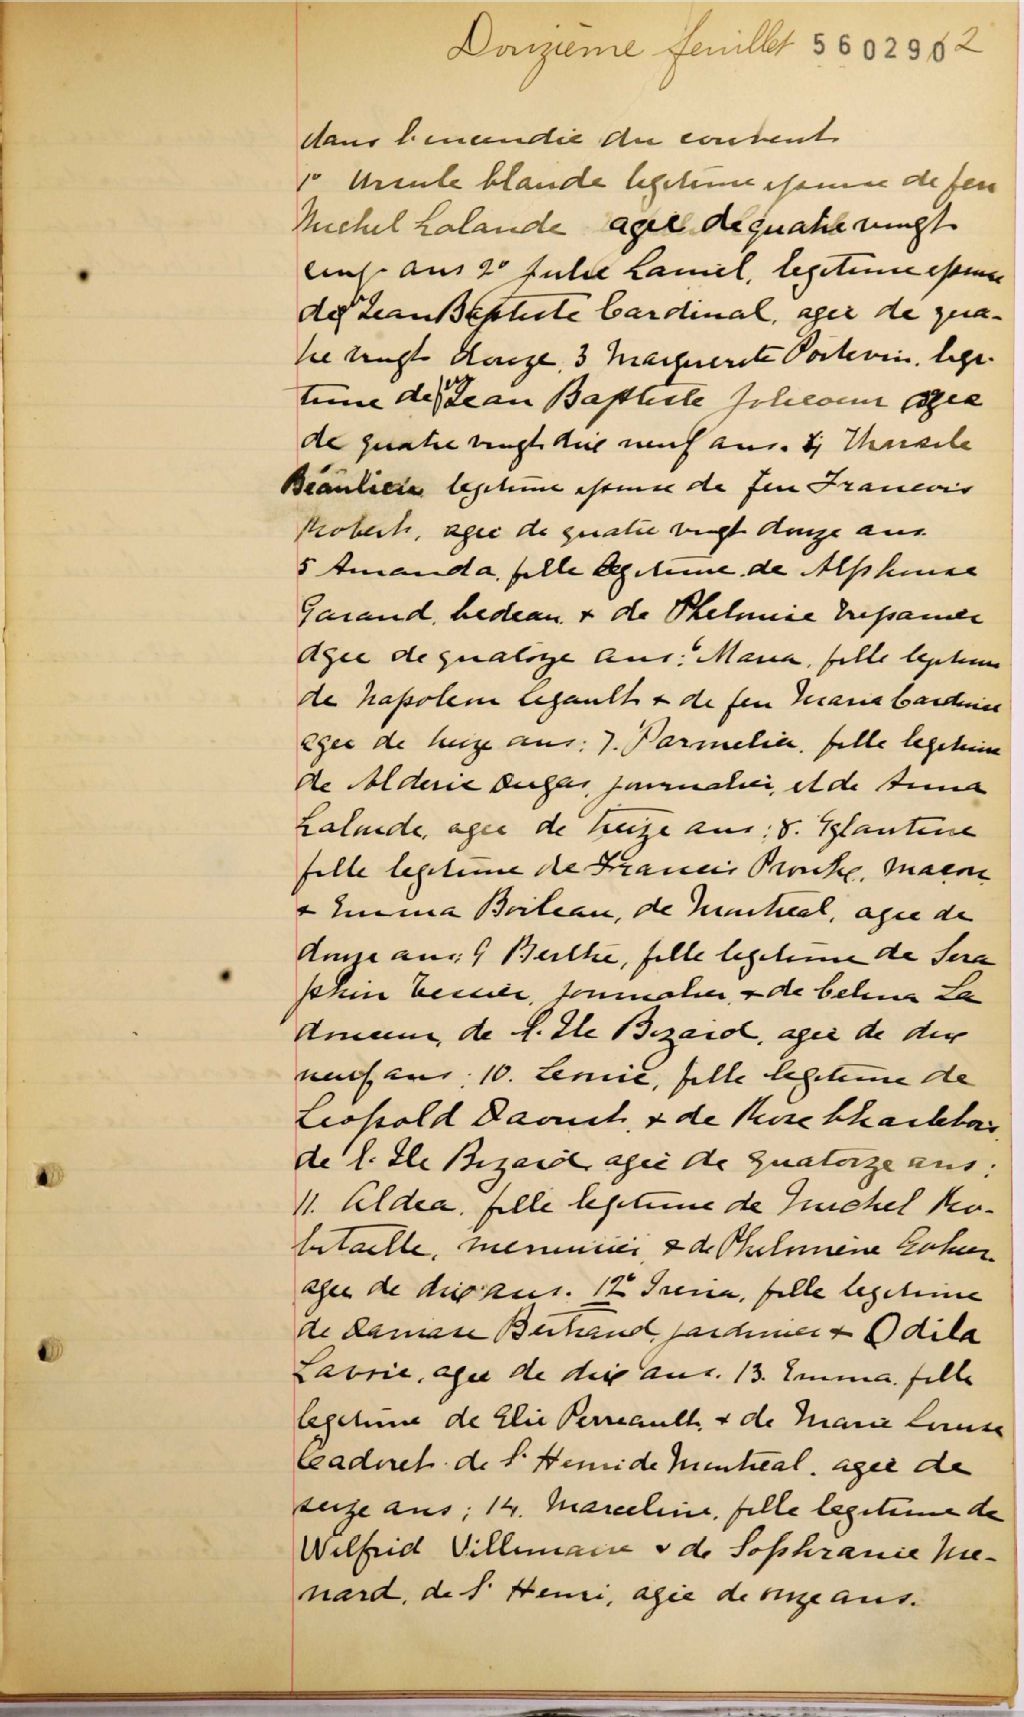 Douzième feuillet 560290 12
dans l'incendie du couvent
1° Ursule Claude legitime epouse de feu
Michel Lalande agee de quatre vingt
cinq ans 2° Julie Laniel, legitime epouse
de feu Jean Baptiste Cardinal, agee de qua-
tre vingt douze, 3 Marguerite Poitevin, legi-
time de feu Jean Baptiste Jolicoeur agee
de quatre vingt dix neuf ans. 4
Beaulieu legitime epouse de feu Francois
Robert, agee de quatre vingt douze ans
5 Amanda, fille legitime de Alphonse
Garand, bedeau + de Phelonise Trepanier
agee de quatorze ans: 6 Maria, fille legitime
de Napoleon Legault + de feu Maria Cardinal
agee de treize ans: 7. Parmelia, fille legitime
de Alderic Dugas, journalier, et de Anna
Lalonde, agee de treize ans: 8. Eglantine
fille legitime de Francis Proulx, macon
+ Emma Boileau, de Montreal, agee de
douze ans; 9 Berthe, fille legitime de Sera
phin Tessier, journalier + de Celina La
douceur, de l'Ile Bizard, agee de dix
neuf ans; 10. Leonie, fille legitime de
Leopold Daoust, + de Rose Charlebois
de l'Ile Bizard agee de quatorze ans:
11. Aldea, fille legitime de Michel Ro-
bitaille, menuisier + de Philomène Gohier
agee de dix ans. 12° Irenia, fille legitime
de Damase Bertrand, jardinier + Odila
Lavoie, agee de dix ans. 13. Emma, fille
legitime de Elie Perreault, + de Marie Louise
Cadoret de St Henri de Montreal, agee de
seize ans; 14. Marceline, fille legitime de
Wilfrid Villemaire + de Sophranie Me-
nard, de St Henri, agee de onze ans.